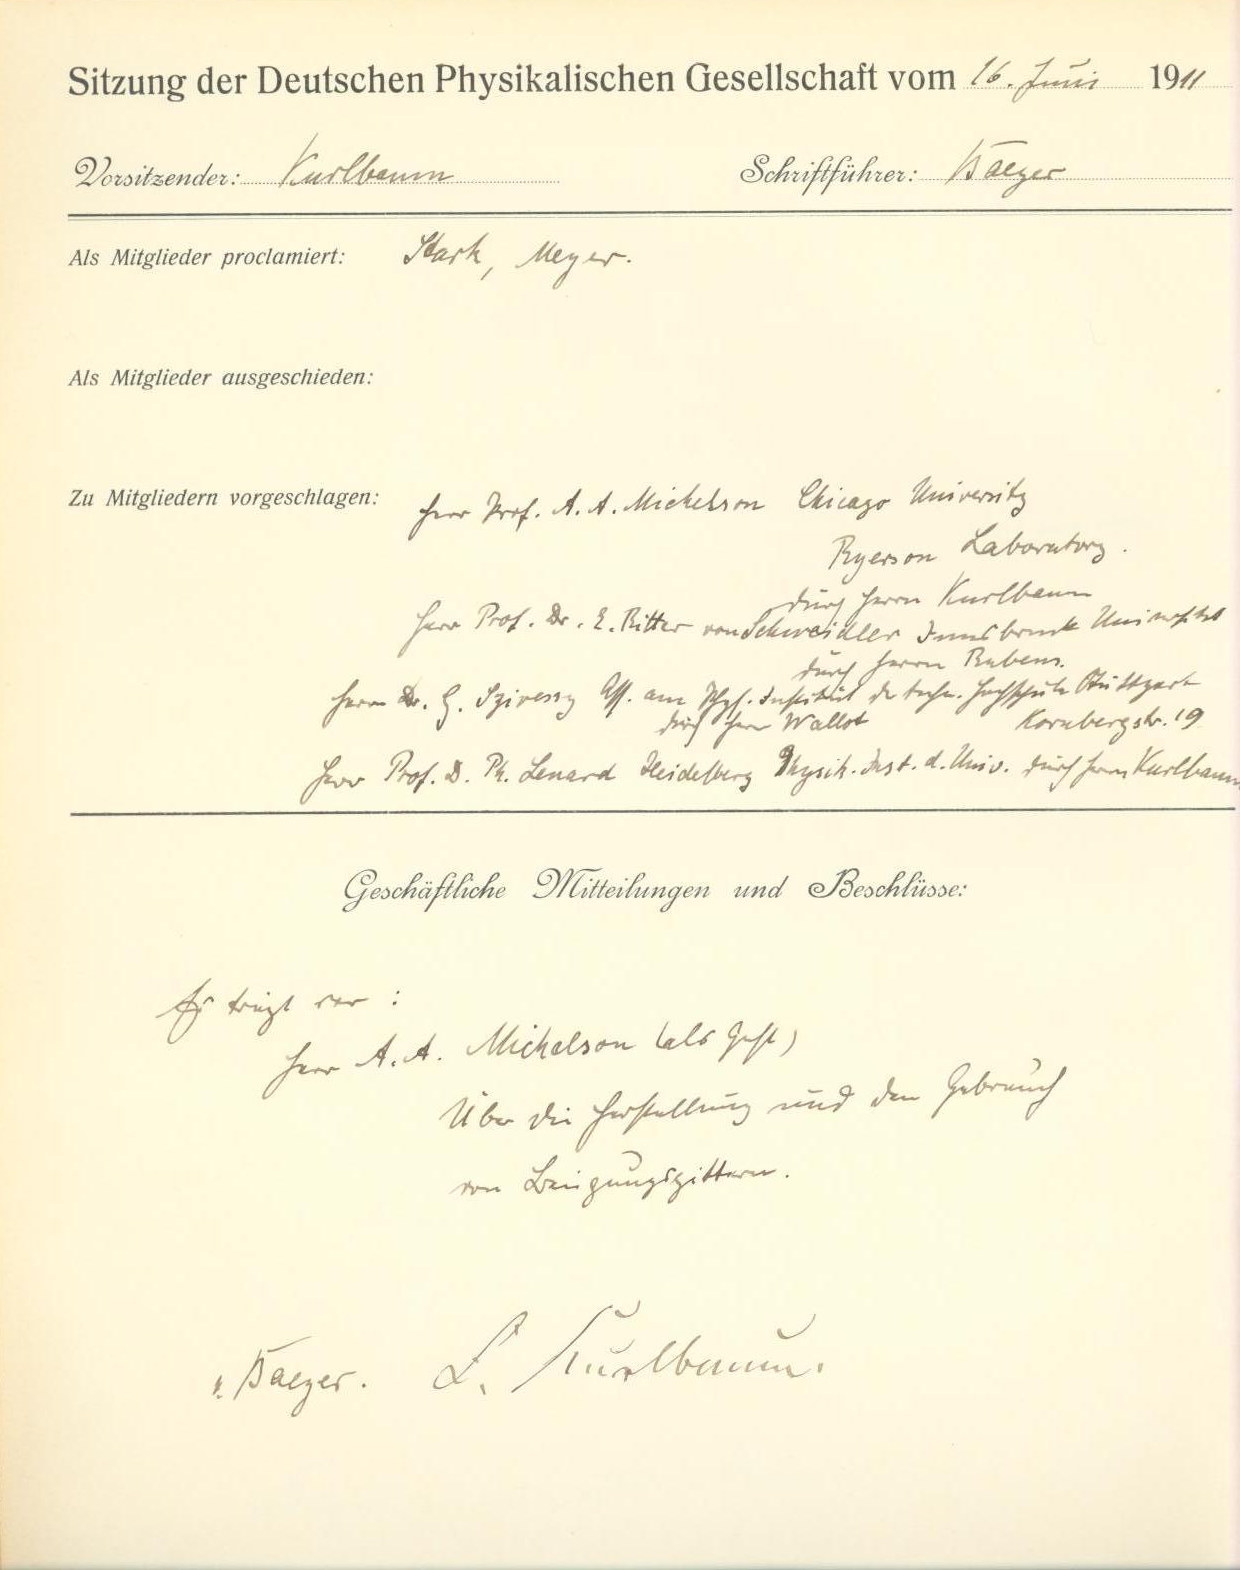 Sitzung der Deutschen Physikalischen Gesellschaft vom 16. Juni 1911
Vorsitzender: Kurlbaum Schriftführer: Baeyer
Als Mitglieder proclamiert: Stark, Meyer.
Als Mitglieder ausgeschieden:
Zu Mitgliedern vorgeschlagen: Herr Prof. A. A. Michelson Chicago University
Ryerson Laboratory.
durch Herrn Kurlbaum
Herr Prof. Dr. E. Ritter von Schweidler Innsbruck Universität
durch Herrn Rubens.
Herr Dr. G. Szivessy Ass. am Phys. Institut d. techn. Hochschule Stuttgart
durch Herrn Wallot Kornbergstr. 19
Herr Prof. D. Ph. Lenard Heidelberg Physik. Inst. d. Univ. durch Herrn Kurlbaum
Geschäftliche Mitteilungen und Beschlüsse:
Es trägt vor:
Herr A. A. Michelson (als Gast)
Über die Herstellung und den Gebrauch
von Beugungsgittern.
v. Baeyer. F. Kurlbaum.